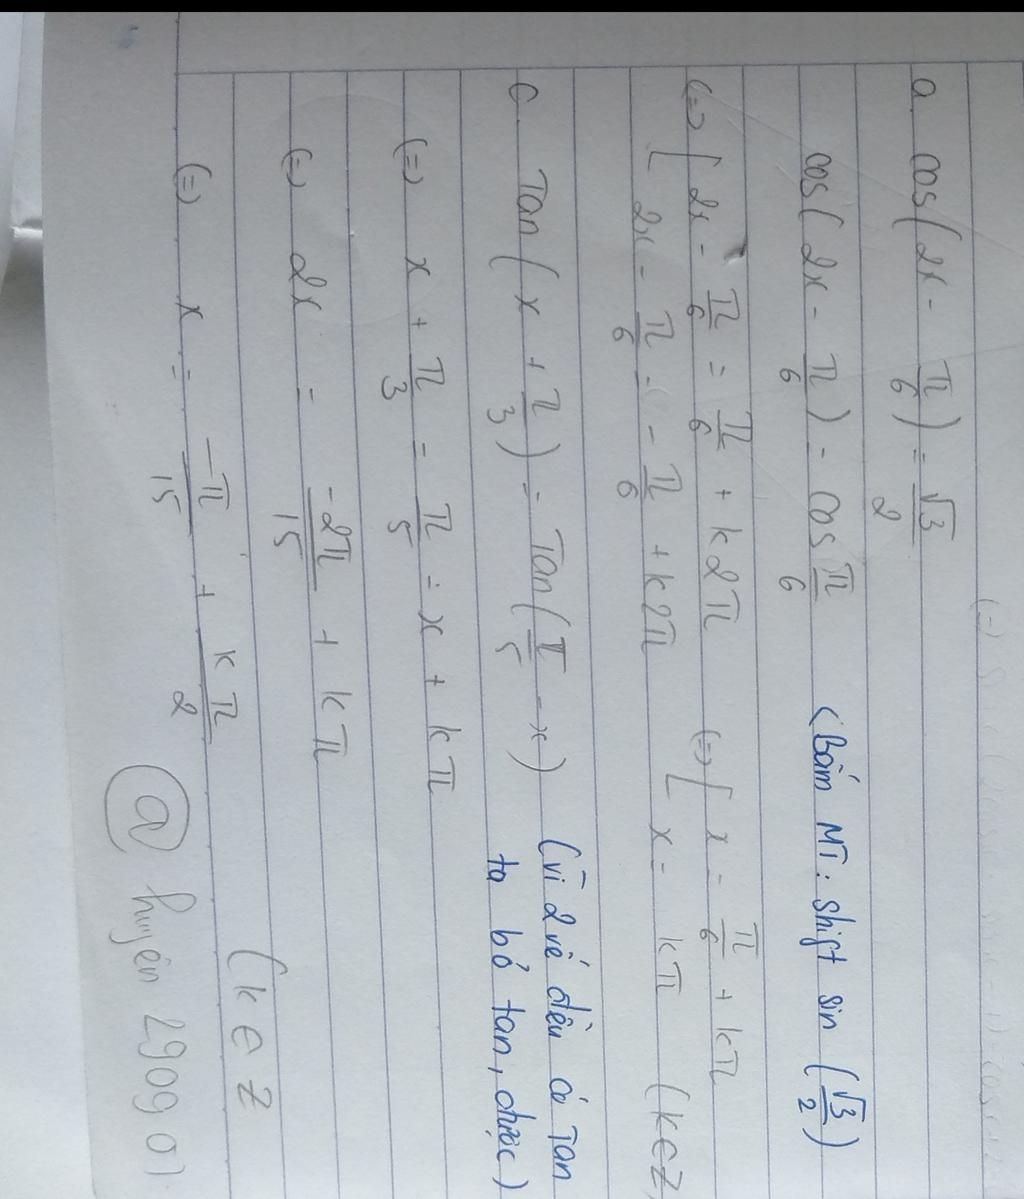 a. cos(2x - π/6) = √3/2
cos(2x - π/6) = cos π/6 (Bấm MT: shift sin (√3/2)
(=) [ 2x - π/6 = π/6 + k2π (=) [ x = π/6 + kπ
[ 2x - π/6 = - π/6 + k2π [ x = kπ (k∈Z)
c. Tan(x + π/3) = Tan(π/5 - x) (vì 2 vế đều có Tan
ta bỏ tan, được)
(=) x + π/3 = π/5 - x + kπ
(=) 2x = -2π/15 + kπ
(=) x = -π/15 + kπ/2 (k∈Z
@ huyên 290901